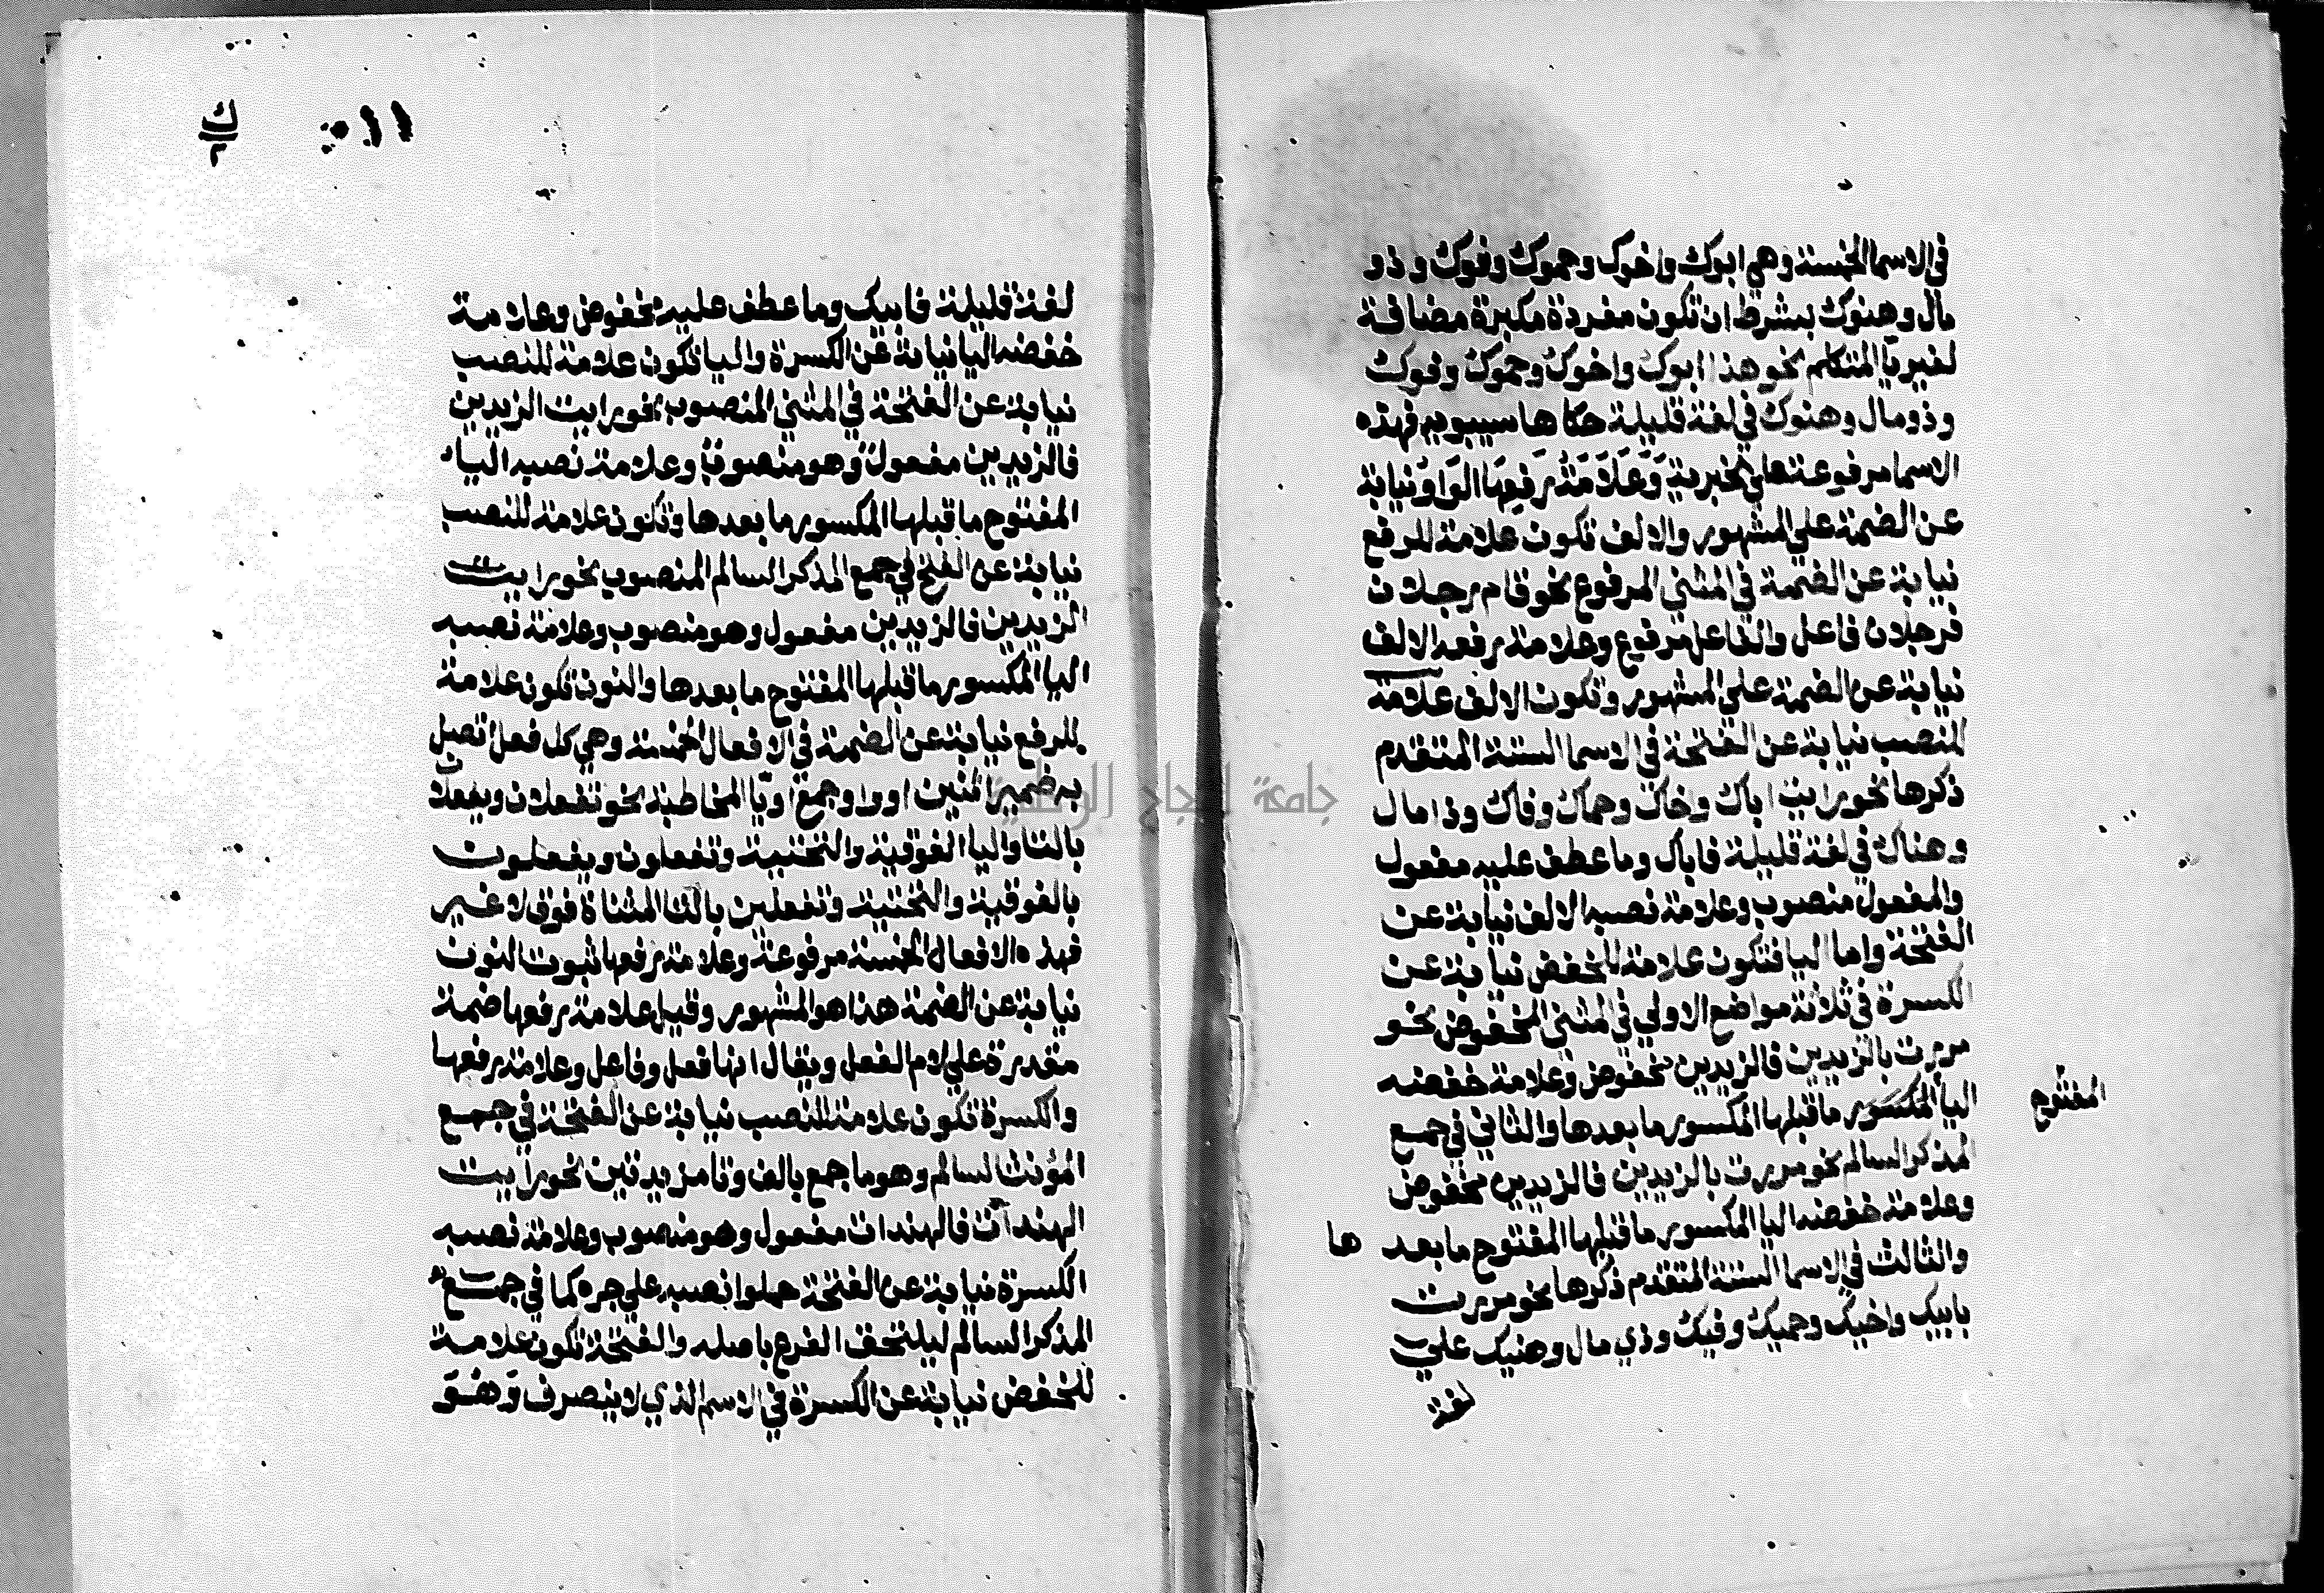 في الاسما الخمسة وهي ابوك واخوك وحموك وفوك وذو
مال وهنوك بشرط ان تكون مفردة مكبرة مضافة
لغير يا المتكلم نحو هذا ابوك واخوك وحموك وفوك
وذو مال وهنوك في لغة قليلة حكاها سيبويه فهذه
الاسما مرفوعة على الخبرية وعلامة رفعها الواو نيابة
عن الضمة علي المشهور والالف تكون علامة للرفع
نيابة عن الضمة في المثني المرفوع نحو قام رجلان
فرجلان فاعل والفاعل مرفوع وعلامة رفعه الالف
نيابة عن الضمة علي المشهور وتكون الالف علامة
للنصب نيابة عن الفتحة في الاسما الستة المتقدم
ذكرها نحو رايت اباك وخاك وحماك وفاك وذا مال
وهناك في لغة قليلة فاباك وما عطف عليه مفعول
والمفعول منصوب وعلامة نصبه الالف نيابة عن
الفتحة واما اليا فتكون علامة للخفض نيابة عن
الكسرة في ثلاثة مواضع الاولي في المثني المخفوض نحو
مررت بالزيدين فالزيدين مخفوض وعلامة خفضه
اليا المكسور ما قبلها المكسور ما بعدها والثاني في جمع
المفتوح
المذكر السالم نحو مررت بالزيدين فالزيدين مخفوض
وعلامة خفضه اليا المكسور ما قبلها المفتوح ما بعد ها
والثالث في الاسما الستة المتقدم ذكرها نحو مررت
بابيك واخيك وحميك وفيك وذي مال وهنيك علي
لغة
١١
ك
٢
لغة قليلة فابيك وما عطف عليه مخفوض وعلامة
خفضه اليا نيابة عن الكسرة واليا تكون علامة للنصب
نيابة عن الفتحة في المثني المنصوب نحو رايت الزيدين
فالزيدين مفعول وهو منصوب وعلامة نصبه الياء
المفتوح ما قبلها المكسور ما بعدها وتكون علامة للنصب
نيابة عن الفتح في جمع المذكر السالم المنصوب نحو رايت
الزيدين فالزيدين مفعول وهو منصوب وعلامة نصبه
اليا المكسور ما قبلها المفتوح ما بعدها والنون تكون علامة
للرفع نيابة عن الضمة في الافعال الخمسة وهي كل فعل اتصل
به ضمير اثنين او واو جمع او يا المخاطبة نحو تفعلان ويفعلان
بالتا واليا الفوقية والتحتية وتفعلون ويفعلون
بالفوقية والتحتية وتفعلين بالتا المثناة فوق لا غير
فهذه الافعال الخمسة مرفوعة وعلامة رفعها ثبوت النون
نيابة عن الضمة هذا هو المشهور وقيل علامة رفعها ضمة
مقدرة علي لام الفعل ويقال انها فعل وفاعل وعلامة رفعها
والكسرة تكون علامة للنصب نيابة عن الفتحة في جمع
المؤنث السالم وهو ما جمع بالف وتا مزيدتين نحو رايت
الهندات فالهندات مفعول وهو منصوب وعلامة نصبه
الكسرة نيابة عن الفتحة حملوا نصبه علي جره كما في جمع
المذكر السالم ليلتحق الفرع باصله والفتحة تكون علامة
للخفض نيابة عن الكسرة في الاسم الذي لا ينصرف وهو
جامعة النجاح الوطنية